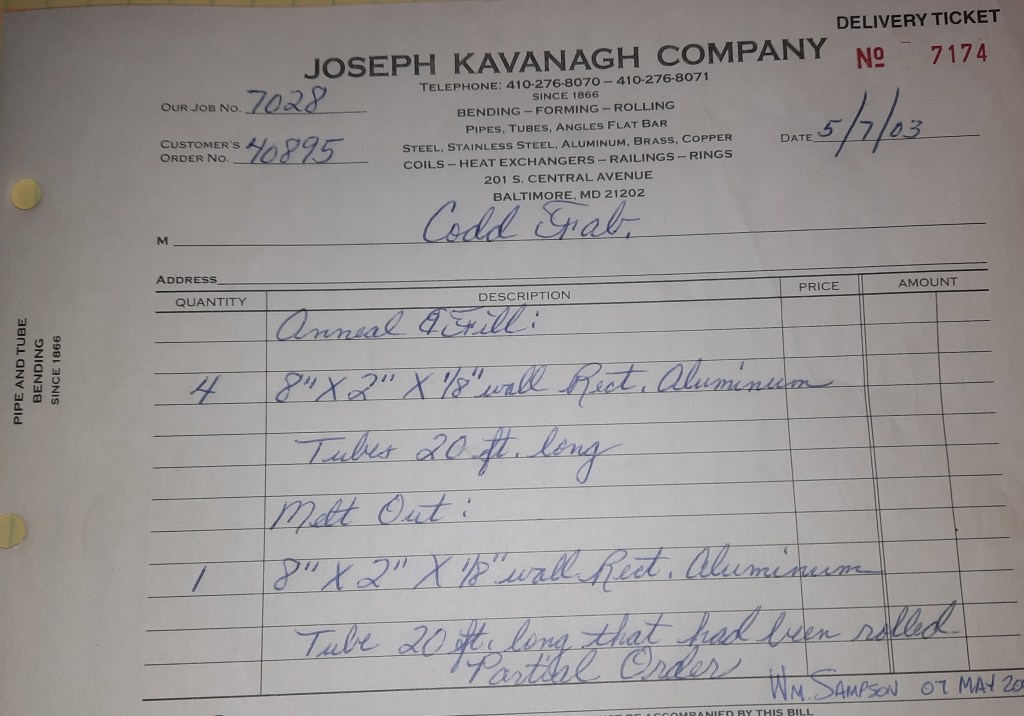 DELIVERY TICKET
JOSEPH KAVANAGH COMPANY
Nº 7174
TELEPHONE: 410-276-8070 – 410-276-8071
SINCE 1866
OUR JOB NO. 7028
BENDING – FORMING – ROLLING
PIPES, TUBES, ANGLES FLAT BAR
CUSTOMER'S
ORDER NO. 40895
STEEL, STAINLESS STEEL, ALUMINUM, BRASS, COPPER
DATE 5/7/03
COILS – HEAT EXCHANGERS – RAILINGS – RINGS
201 S. CENTRAL AVENUE
BALTIMORE, MD 21202
M Codd Fab.
ADDRESS
QUANTITY DESCRIPTION PRICE AMOUNT
Anneal & Fill:
4 8" X 2" X 1/8" wall Rect. Aluminum
Tubes 20 ft. long
Melt Out:
1 8" X 2" X 1/8" wall Rect. Aluminum
Tube 20 ft. long that had been rolled
Partial Order
WM. SAMPSON 07 MAY
BE ACCOMPANIED BY THIS BILL
PIPE AND TUBE
BENDING
SINCE 1866